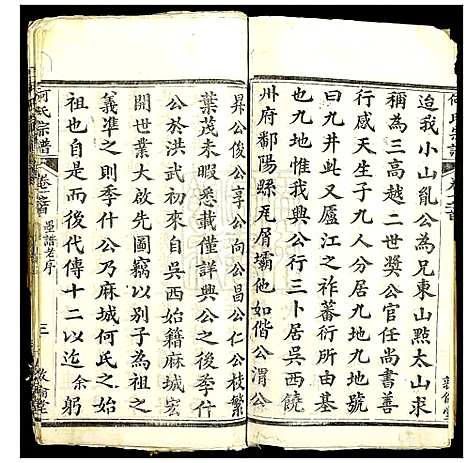 迨我小山亂公為兄東山點太山求
稱為三高越二世獎公官任尚書善
行感天生子九人分居九地九地號
曰九井此又廬江之祚蕃衍所由基
也九地惟我興公行三卜居吳西饒
州府鄱陽縣瓦屑壩他如偕公渭公
昇公俊公享公向公昌公仁公枝繁
葉茂未暇悉載僅詳興公之後季什
公於洪武初來自吳西始籍麻城宏
開世業大啟先圖竊以別子為祖之
義準之則季什公乃麻城何氏之始
祖也而後代傳十二以迄余躬
何氏宗譜
卷之首
墨譜老序
三
敦倫堂